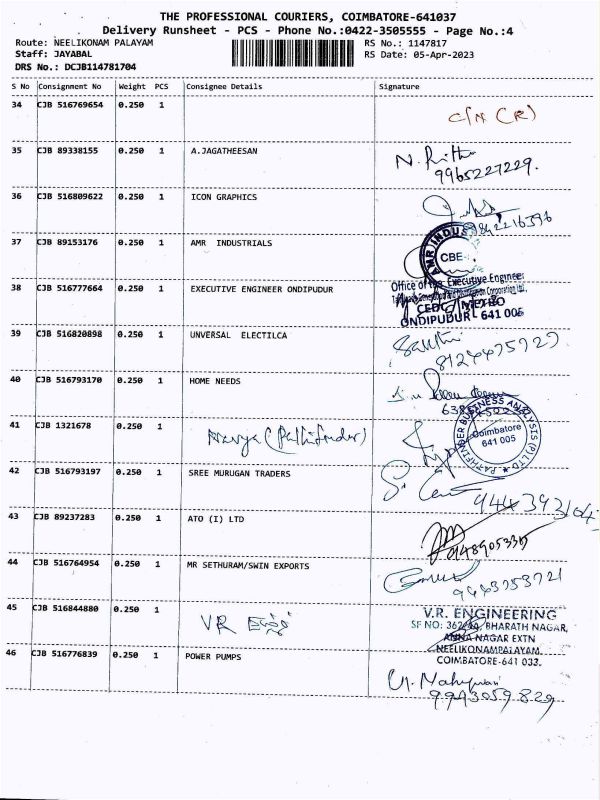 THE PROFESSIONAL COURIERS, COIMBATORE-641037
Delivery Runsheet - PCS - Phone No.:0422-3505555 - Page No.:4
Route: NEELIKONAM PALAYAM
RS No.: 1147817
Staff: JAYABAL
RS Date: 05-Apr-2023
DRS No.: DCJB114781704
S No Consignment No Weight PCS Consignee Details Signature
34 CJB 516769654 0.250 1 C/N (R)
35 CJB 89338155 0.250 1 A.JAGATHEESAN
9965227229.
36 CJB 516809622 0.250 1 ICON GRAPHICS
37 CJB 89153176 0.250 1 AMR INDUSTRIALS
AMR INDUS
CBE-
38 CJB 516777664 0.250 1 EXECUTIVE ENGINEER ONDIPUDUR
Office of the Executive Engineer
CEDC / METRO
ONDIPUDUR 641 005
39 CJB 516820898 0.250 1 UNVERSAL ELECTILCA
Sakthi
8124475727.
40 CJB 516793170 0.250 1 HOME NEEDS
41 CJB 1321678 0.250 1 (Pathfinder)
PATHFINDER BUSINESS ANALYSIS (P) LTD.
Coimbatore
641 005
42 CJB 516793197 0.250 1 SREE MURUGAN TRADERS
43 CJB 89237283 0.250 1 ATO (I) LTD
44 CJB 516764954 0.250 1 MR SETHURAM/SWIN EXPORTS
9443753721
45 CJB 516844880 0.250 1 VR
V.R. ENGINEERING
BHARATH NAGAR,
ANNA NAGAR EXTN
NEELIKONAMPALAYAM,
COIMBATORE-641 033.
46 CJB 516776839 0.250 1 POWER PUMPS
9943059829